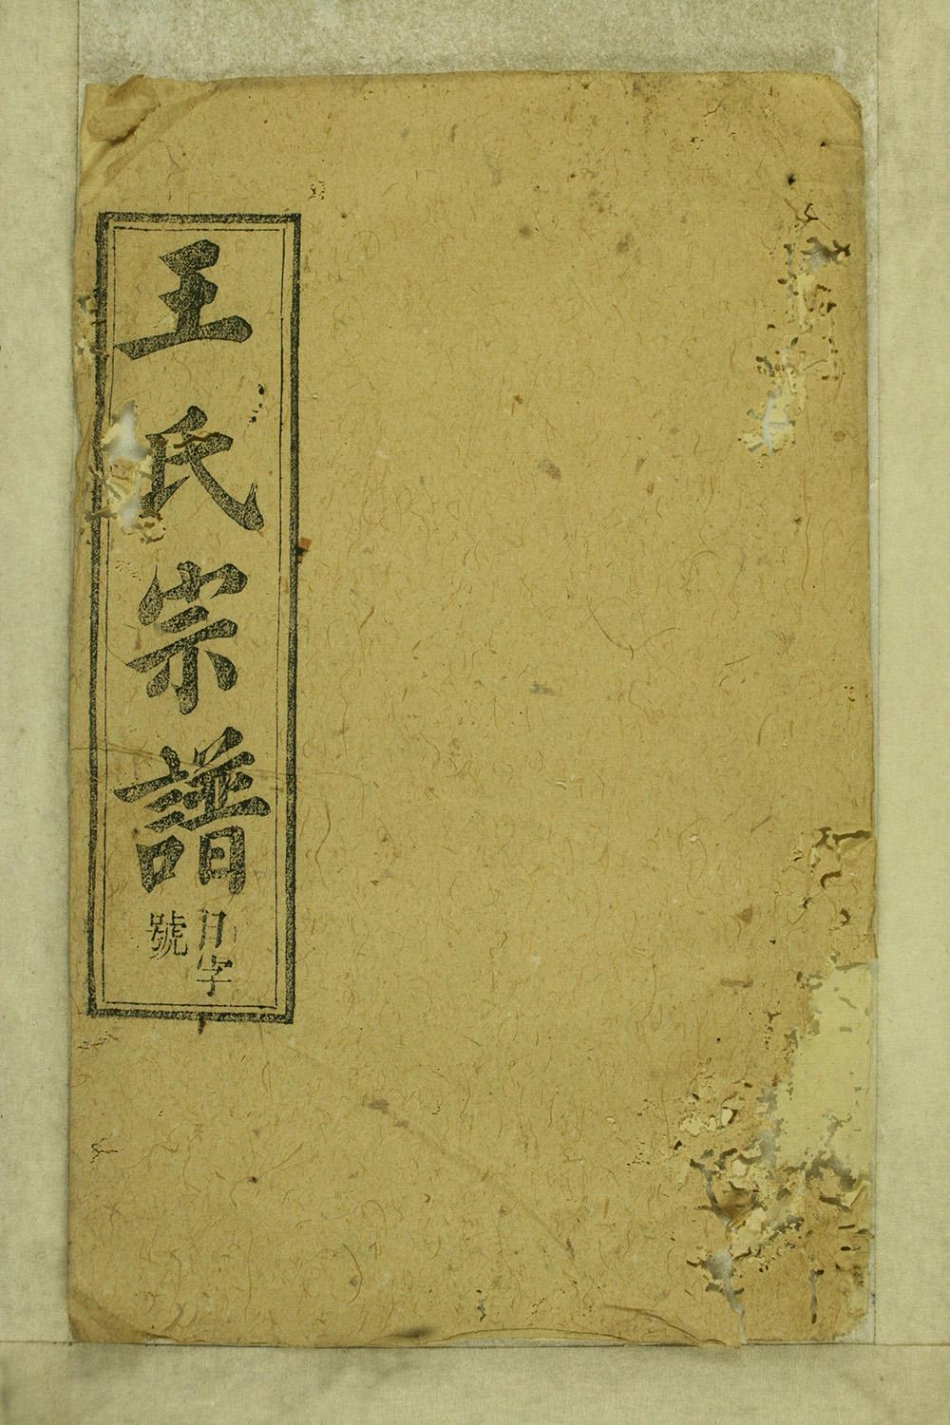 王氏宗譜
日字
號